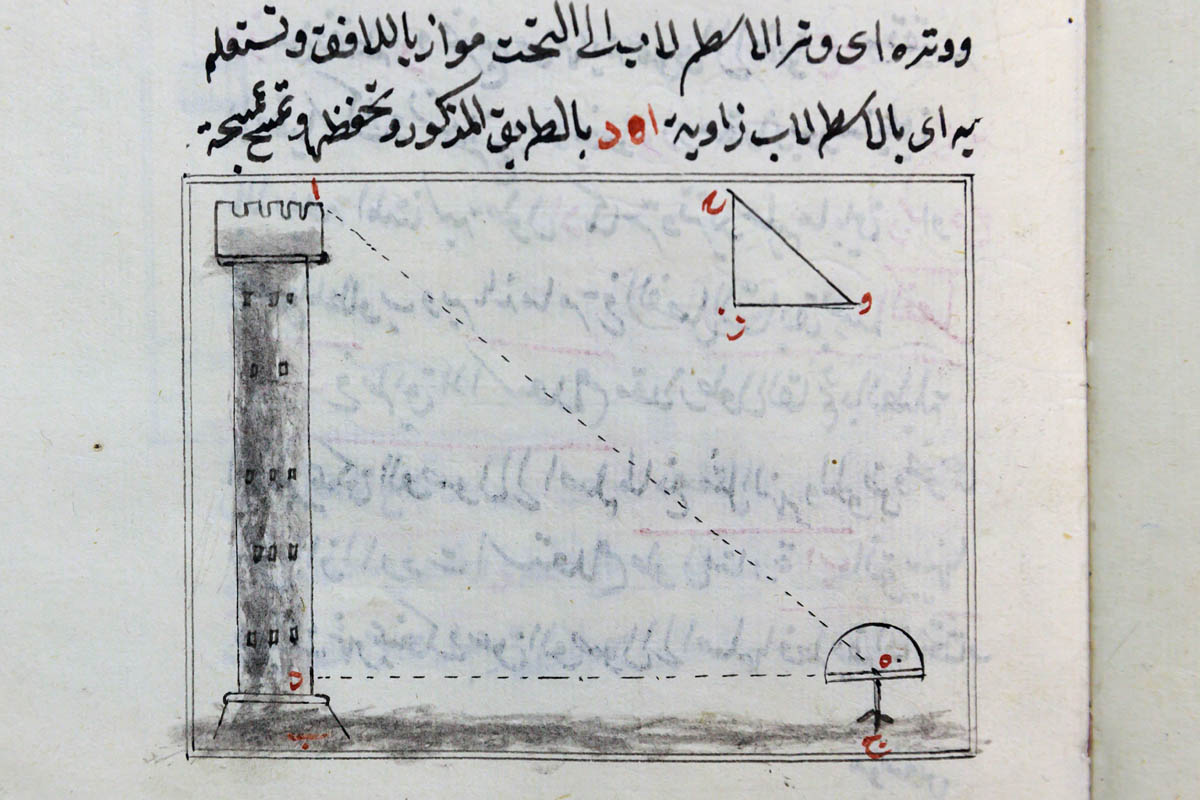 ووتره اى وتر الاسطرلاب الى التحت موازيا للافق وتستعلم
به اى بالاسطرلاب زاوية اهد بالطريق المذكور وتحفظها وتمسح
ا
و
ز
ه
د
ب
ج